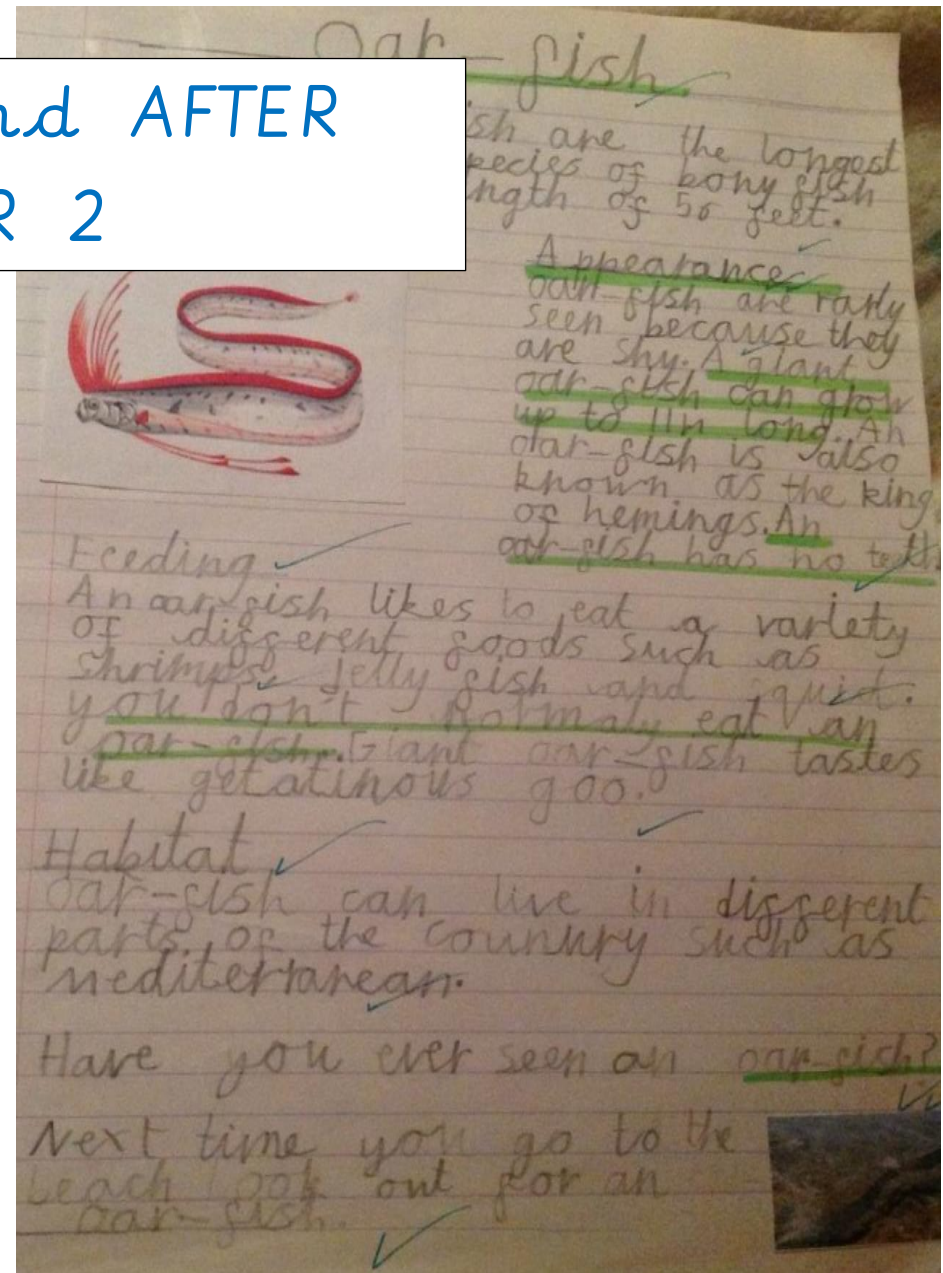 Oar-fish
nd AFTER
R 2
ish are the longest
pecies of bony fish
ngth of 56 feet.
Appearance
oar-fish are rarly
seen because they
are shy. A giant
oar-fish can grow
up to 11m long. An
oar-fish is also
known as the king
of hemings. An
oar-fish has no teeth
Feeding
An oar-fish likes to eat a variety
of different foods such as
shrimps, jelly fish and squit.
you don't normaly eat an
oar-fish. Giant oar-fish tastes
like gelatinous goo.
Habitat
oar-fish can live in different
parts of the counury such as
mediterranean.
Have you ever seen an oar-fish?
Next time you go to the
beach look out for an
oar-fish.